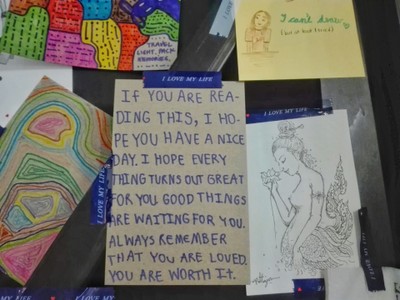 TRAVEL
LIGHT, PACK
MEMORIES.
I can't draw
(but at least I tried)
I LOVE MY LIFE
IF YOU ARE REA-
DING THIS, I HO-
PE YOU HAVE A NICE
DAY. I HOPE EVERY
THING TURNS OUT GREAT
FOR YOU GOOD THINGS
ARE WAITING FOR YOU.
ALWAYS REMEMBER
THAT YOU ARE LOVED.
YOU ARE WORTH IT.
I LOVE MY LIFE
I LOVE MY LIFE
I LOVE MY LIFE